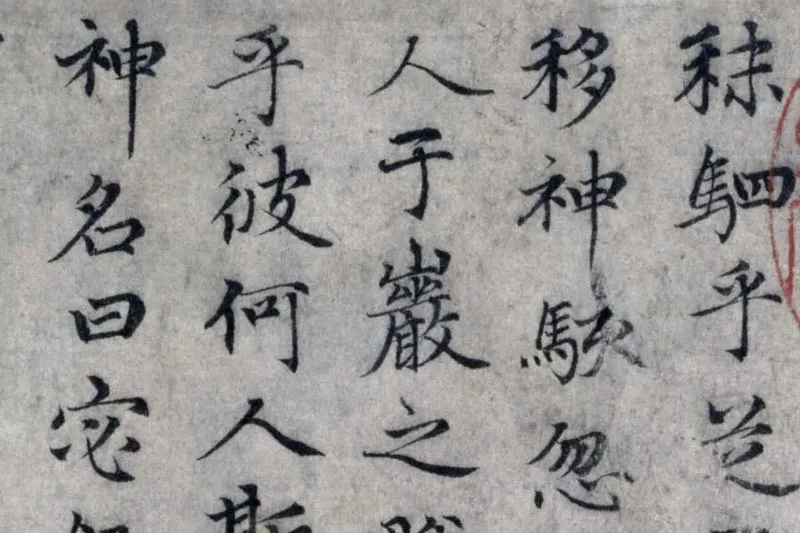 秣駟乎芝
移神駭忽
人于巖之
乎彼何人斯
神名曰宓